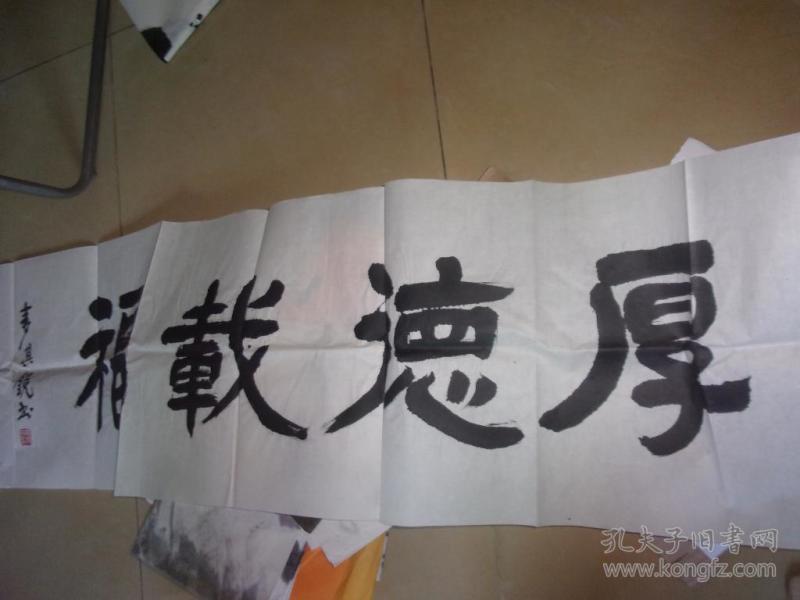 厚德載福
孔夫子旧书网
www.kongfz.com